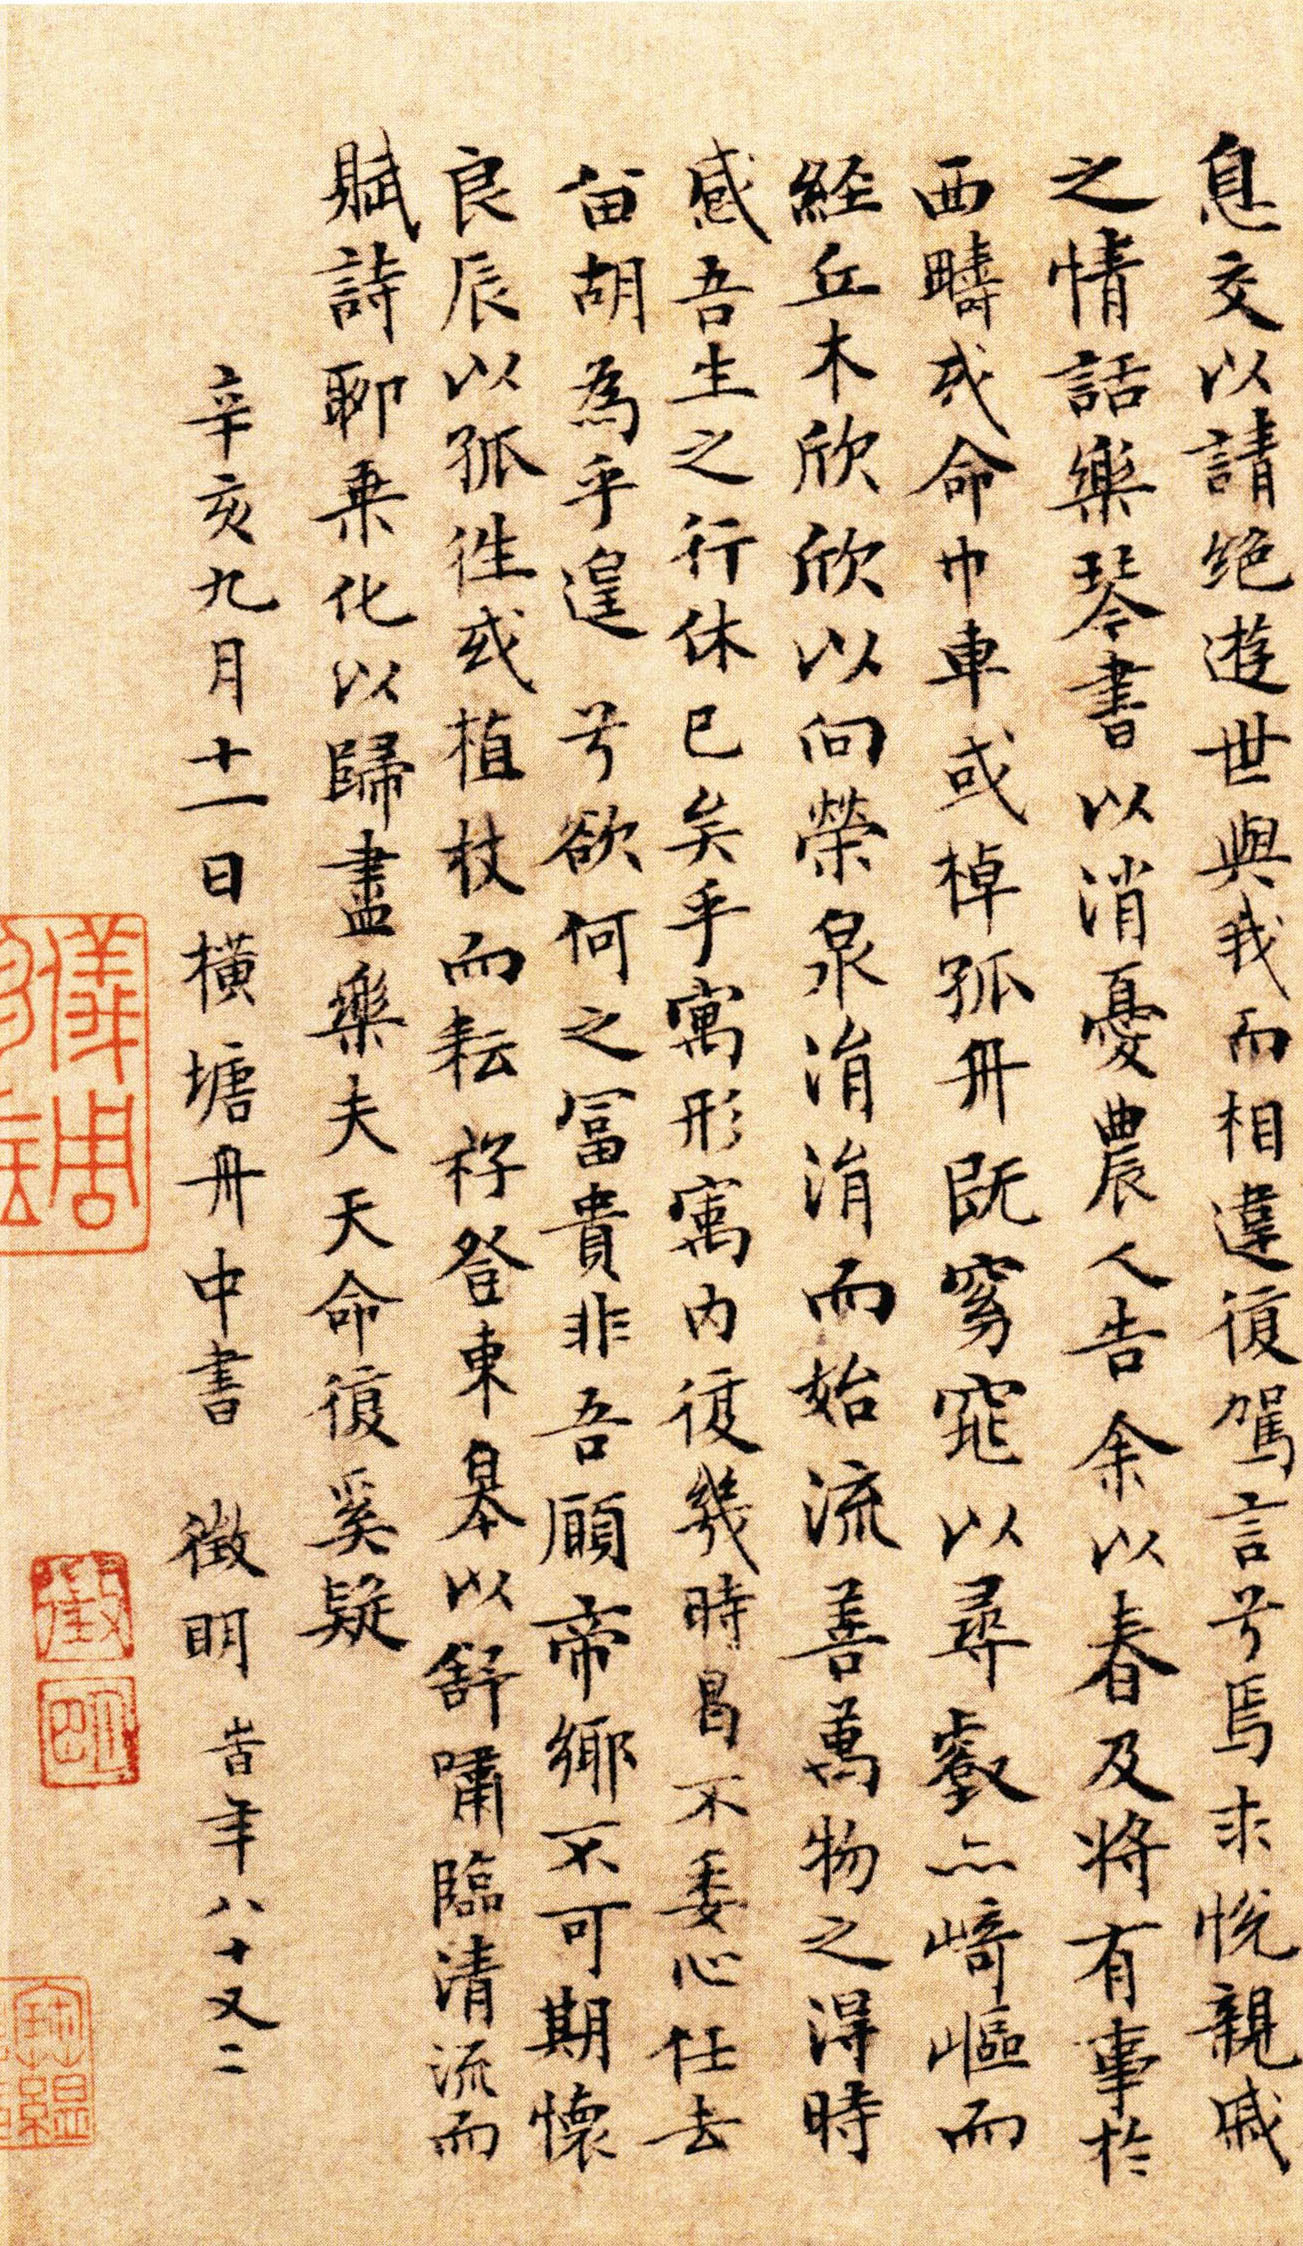 息交以請絶遊世與我而相違復駕言兮焉求悅親戚
之情話樂琴書以消憂農人告余以春及将有事於
西疇或命巾車或棹孤舟既窈窕以尋壑亦崎嶇而
経丘木欣欣以向榮泉涓涓而始流善萬物之得時
感吾生之行休已矣乎寓形寓内復幾時曷不委心任去
留胡為乎遑兮欲何之冨貴非吾願帝鄉不可期懷
良辰以孤往或植杖而耘耔登東皋以舒嘯臨清流而
賦詩聊乗化以歸盡樂夫天命復奚疑
辛亥九月十一日橫塘舟中書 徵明 旹年八十又二
儀周
徵
明